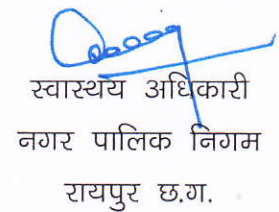 स्वास्थय अधिकारी
नगर पालिक निगम
रायपुर छ.ग.